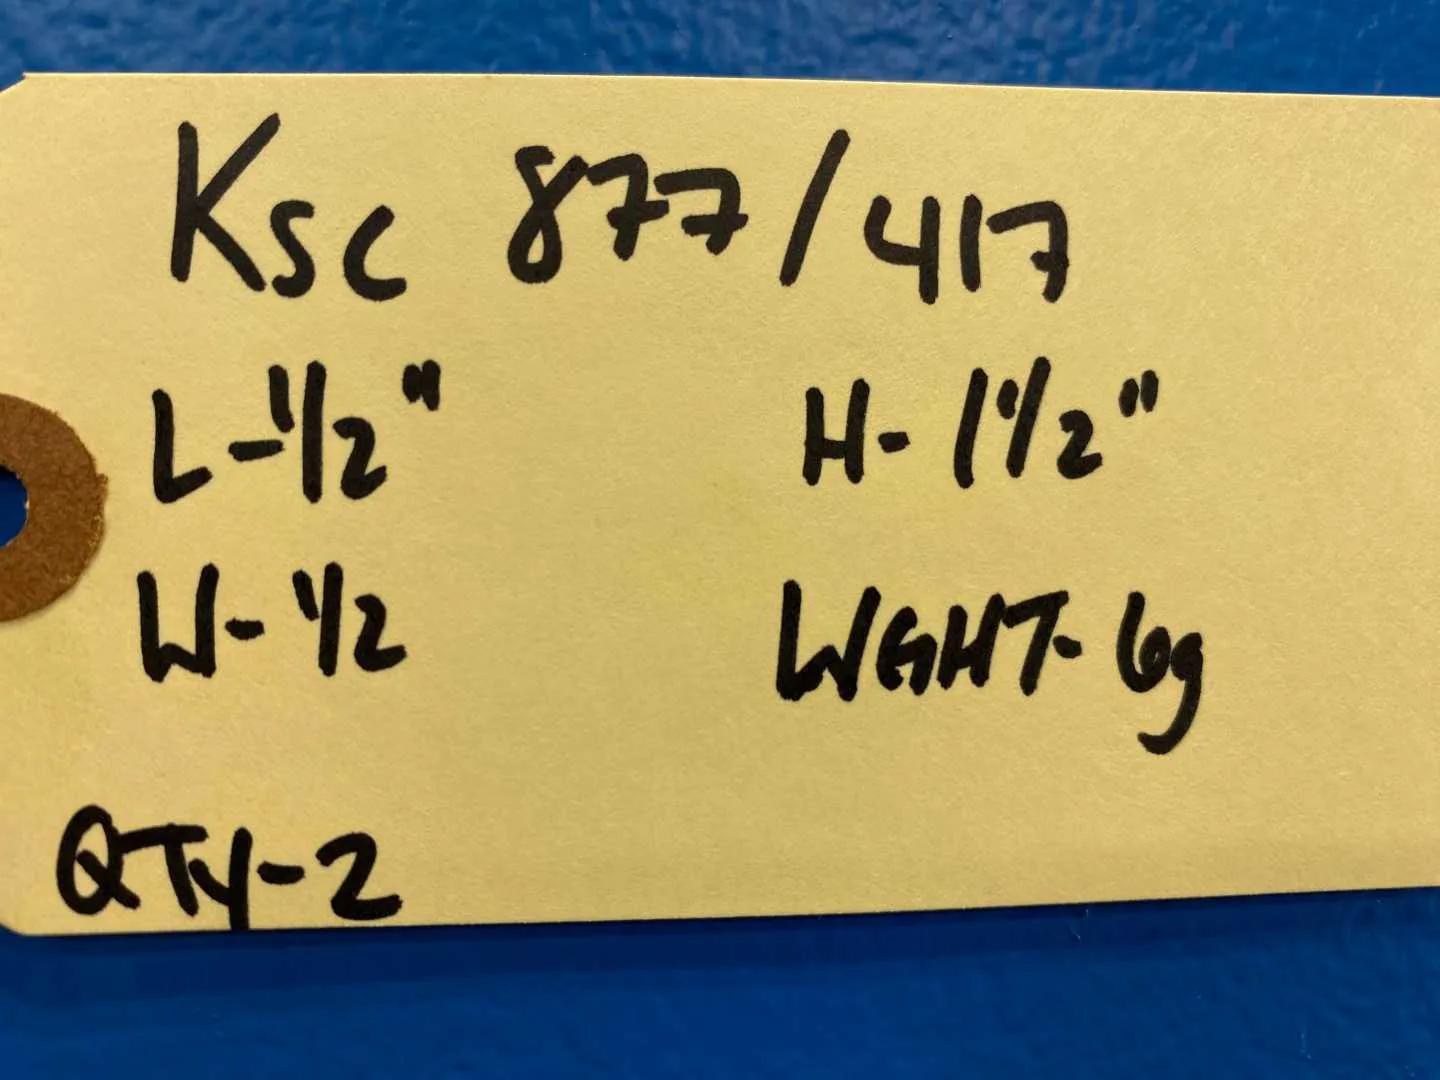 Ksc 877/417
L-1/2" H- 1 1/2"
W- 1/2 WGHT- 6g
QTy-2